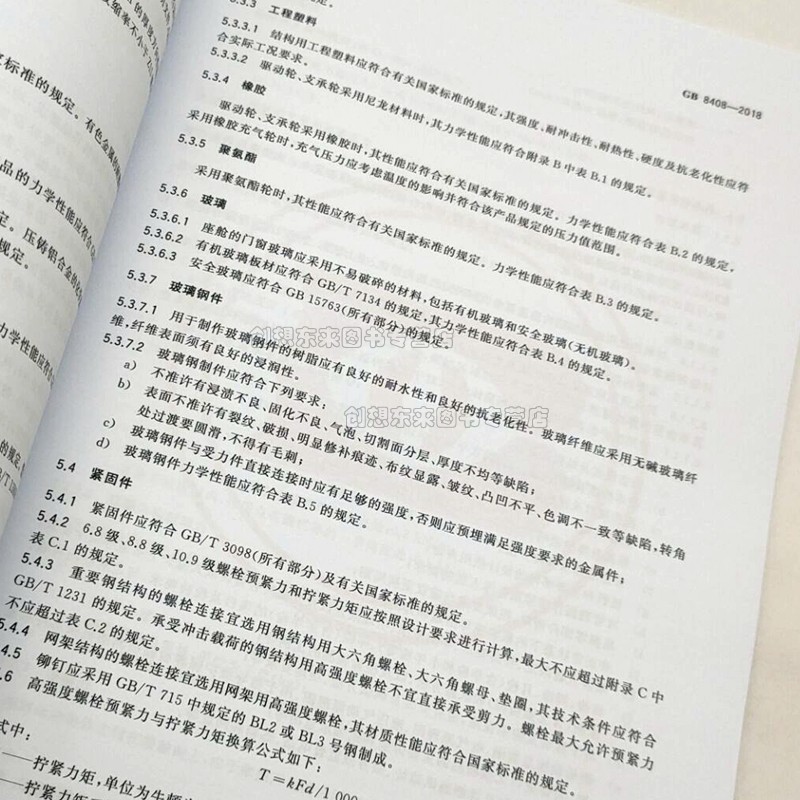 GB 8408—2018
5.3.3 工程塑料
5.3.3.1 结构用工程塑料应符合有关国家标准的规定,其强度、耐冲击性、耐热性、硬度及抗老化性应符
合实际工况要求。
5.3.3.2 驱动轮、支承轮采用尼龙材料时,其力学性能应符合附录 B 中表 B.1 的规定。
5.3.4 橡胶
驱动轮、支承轮采用橡胶时,其性能应符合有关国家标准的规定。力学性能应符合表 B.2 的规定。
采用橡胶充气轮时,充气压力应考虑温度的影响并符合该产品规定的压力值范围。
5.3.5 聚氨酯
采用聚氨酯轮时,其性能应符合有关国家标准的规定。力学性能应符合表 B.3 的规定。
5.3.6 玻璃
5.3.6.1 座舱的门窗玻璃应采用不易破碎的材料,包括有机玻璃和安全玻璃(无机玻璃)。
5.3.6.2 有机玻璃板材应符合 GB/T 7134 的规定,其力学性能应符合表 B.4 的规定。
5.3.6.3 安全玻璃应符合 GB 15763(所有部分)的规定。
5.3.7 玻璃钢件
5.3.7.1 用于制作玻璃钢件的树脂应有良好的耐水性和良好的抗老化性。玻璃纤维应采用无碱玻璃纤
维,纤维表面须有良好的浸润性。
5.3.7.2 玻璃钢制件应符合下列要求:
a) 不准许有浸渍不良、固化不良、气泡、切割面分层、厚度不均等缺陷;
b) 表面不准许有裂纹、破损、明显修补痕迹、布纹显露、皱纹、凸凹不平、色调不一致等缺陷,转角
处过渡要圆滑,不得有毛刺;
c) 玻璃钢件与受力件直接连接时应有足够的强度,否则应预埋满足强度要求的金属件;
d) 玻璃钢件力学性能应符合表 B.5 的规定。
5.4 紧固件
5.4.1 紧固件应符合 GB/T 3098(所有部分)及有关国家标准的规定。
5.4.2 6.8 级、8.8 级、10.9 级螺栓预紧力和拧紧力矩应按照设计要求进行计算,最大不应超过附录 C 中
表 C.1 的规定。
5.4.3 重要钢结构的螺栓连接宜选用钢结构用大六角螺栓、大六角螺母、垫圈,其技术条件应符合
GB/T 1231 的规定。承受冲击载荷的钢结构用高强度螺栓不宜直接承受剪力。螺栓最大允许预紧力
不应超过表 C.2 的规定。
5.4.4 网架结构的螺栓连接宜选用网架用高强度螺栓,其材质性能应符合国家标准的规定。
4.5 铆钉应采用 GB/T 715 中规定的 BL2 或 BL3 号钢制成。
.6 高强度螺栓预紧力与拧紧力矩换算公式如下:
T=kFd/1 000
式中:
——拧紧力矩,单位为牛顿
——拧紧力矩
创想东来图书专营店
创想东来图书专营店